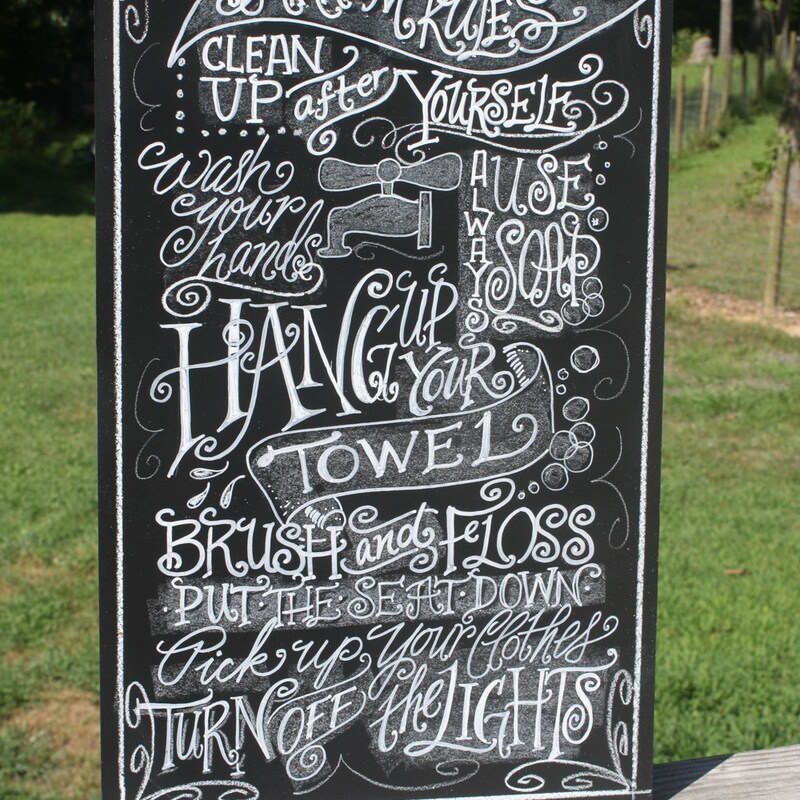 RULES
CLEAN
UP after YOURSELF
wash
your
hands
ALWAYS
USE
SOAP
HANG UP
YOUR
TOWEL
BRUSH and FLOSS
PUT·THE·SEAT·DOWN
Pick up Your Clothes
TURN OFF the LIGHTS